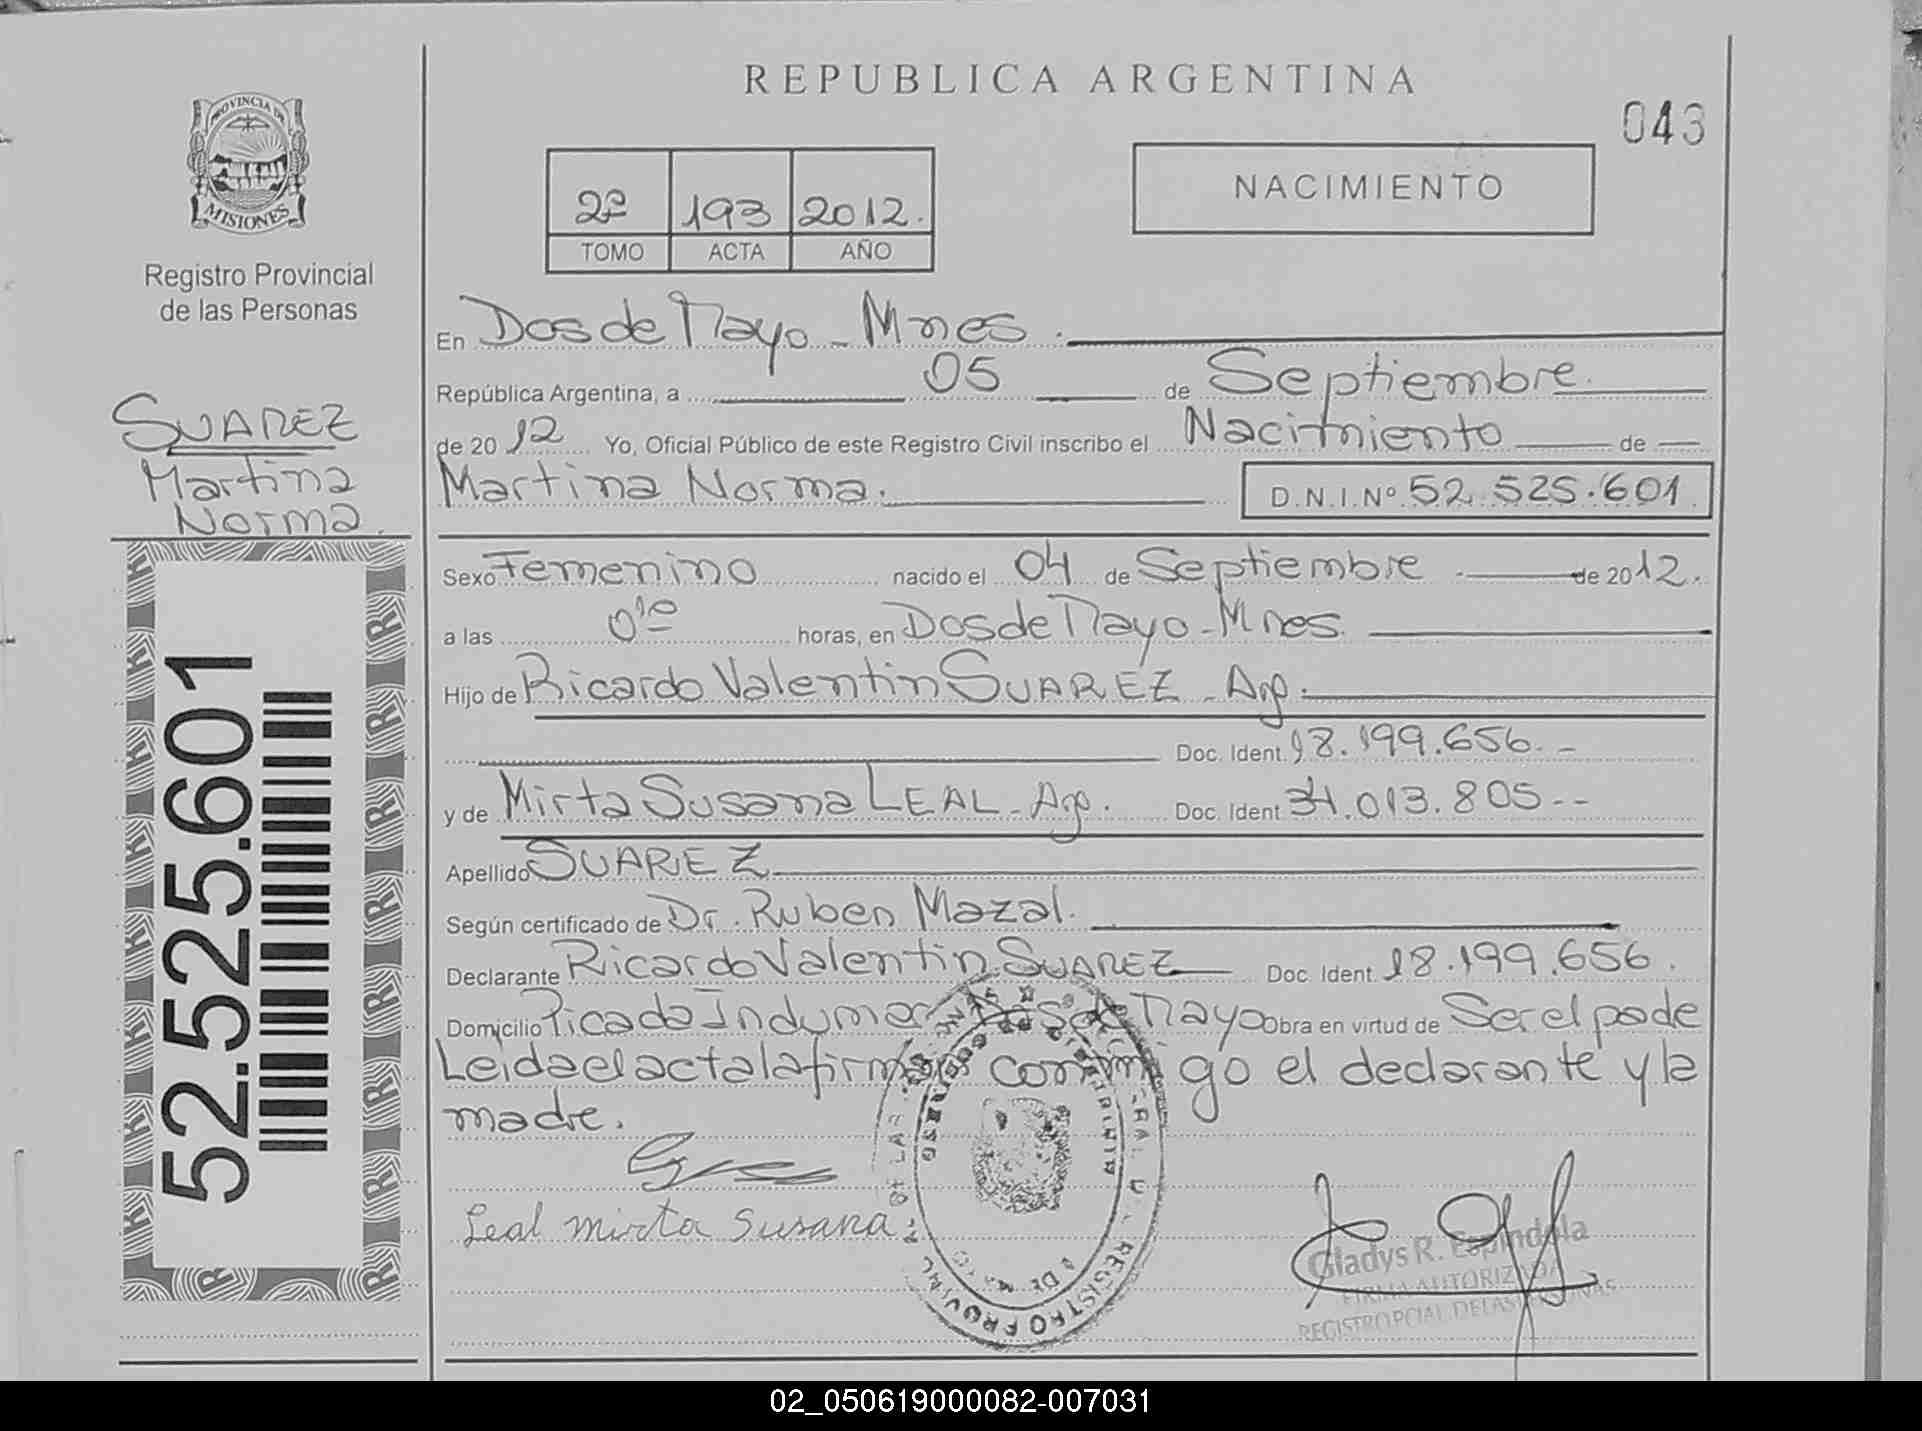 REPUBLICA ARGENTINA
043
PROVINCIA DE
MISIONES
Registro Provincial
de las Personas
2º 193 2012.
TOMO ACTA AÑO
NACIMIENTO
SUAREZ
Martina
Norma.
52.525.601
En Dos de Mayo - Mnes.
República Argentina, a 05 de Septiembre.
de 2012 Yo, Oficial Público de este Registro Civil inscribo el Nacimiento de
Martina Norma. D.N.I.Nº 52.525.601.
Sexo Femenino nacido el 04 de Septiembre de 2012.
a las horas, en Dos de Mayo - Mnes.
Hijo de Ricardo Valentin SUAREZ - Arg.
Doc. Ident. 18.199.656.-
y de Mirta Susana LEAL - Arg. Doc. Ident 34.013.805--
Apellido SUAREZ
Según certificado de Dr. Ruben Mazal.
Declarante Ricardo Valentin SUAREZ Doc. Ident. 18.199.656.
Domicilio Picada Indumar Dos de Mayo Obra en virtud de Ser el pade
Leida el acta la firman conmigo el declarante y la
madre.
Leal mirta Susana
Gladys R. Espindola
FIRMA AUTORIZADA
REGISTRO PCIAL. DE LAS PERSONAS
02_050619000082-007031